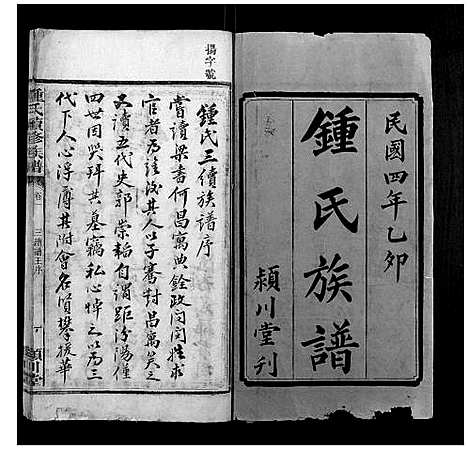 民國四年乙卯
鍾氏族譜
潁川堂刊
揚字號
鍾氏三續族譜序
嘗讀梁書何昌寓典銓政閔閔姓求
官者為後或其人以子騫對昌寓矣之
又讀五代史郭崇韜自謂距汾陽僅
四世因哭拜其墓竊私心悼之以為三
代下人心浮薄其附會名賢攀援華
鍾氏續修族譜
三續譜王序
潁川堂